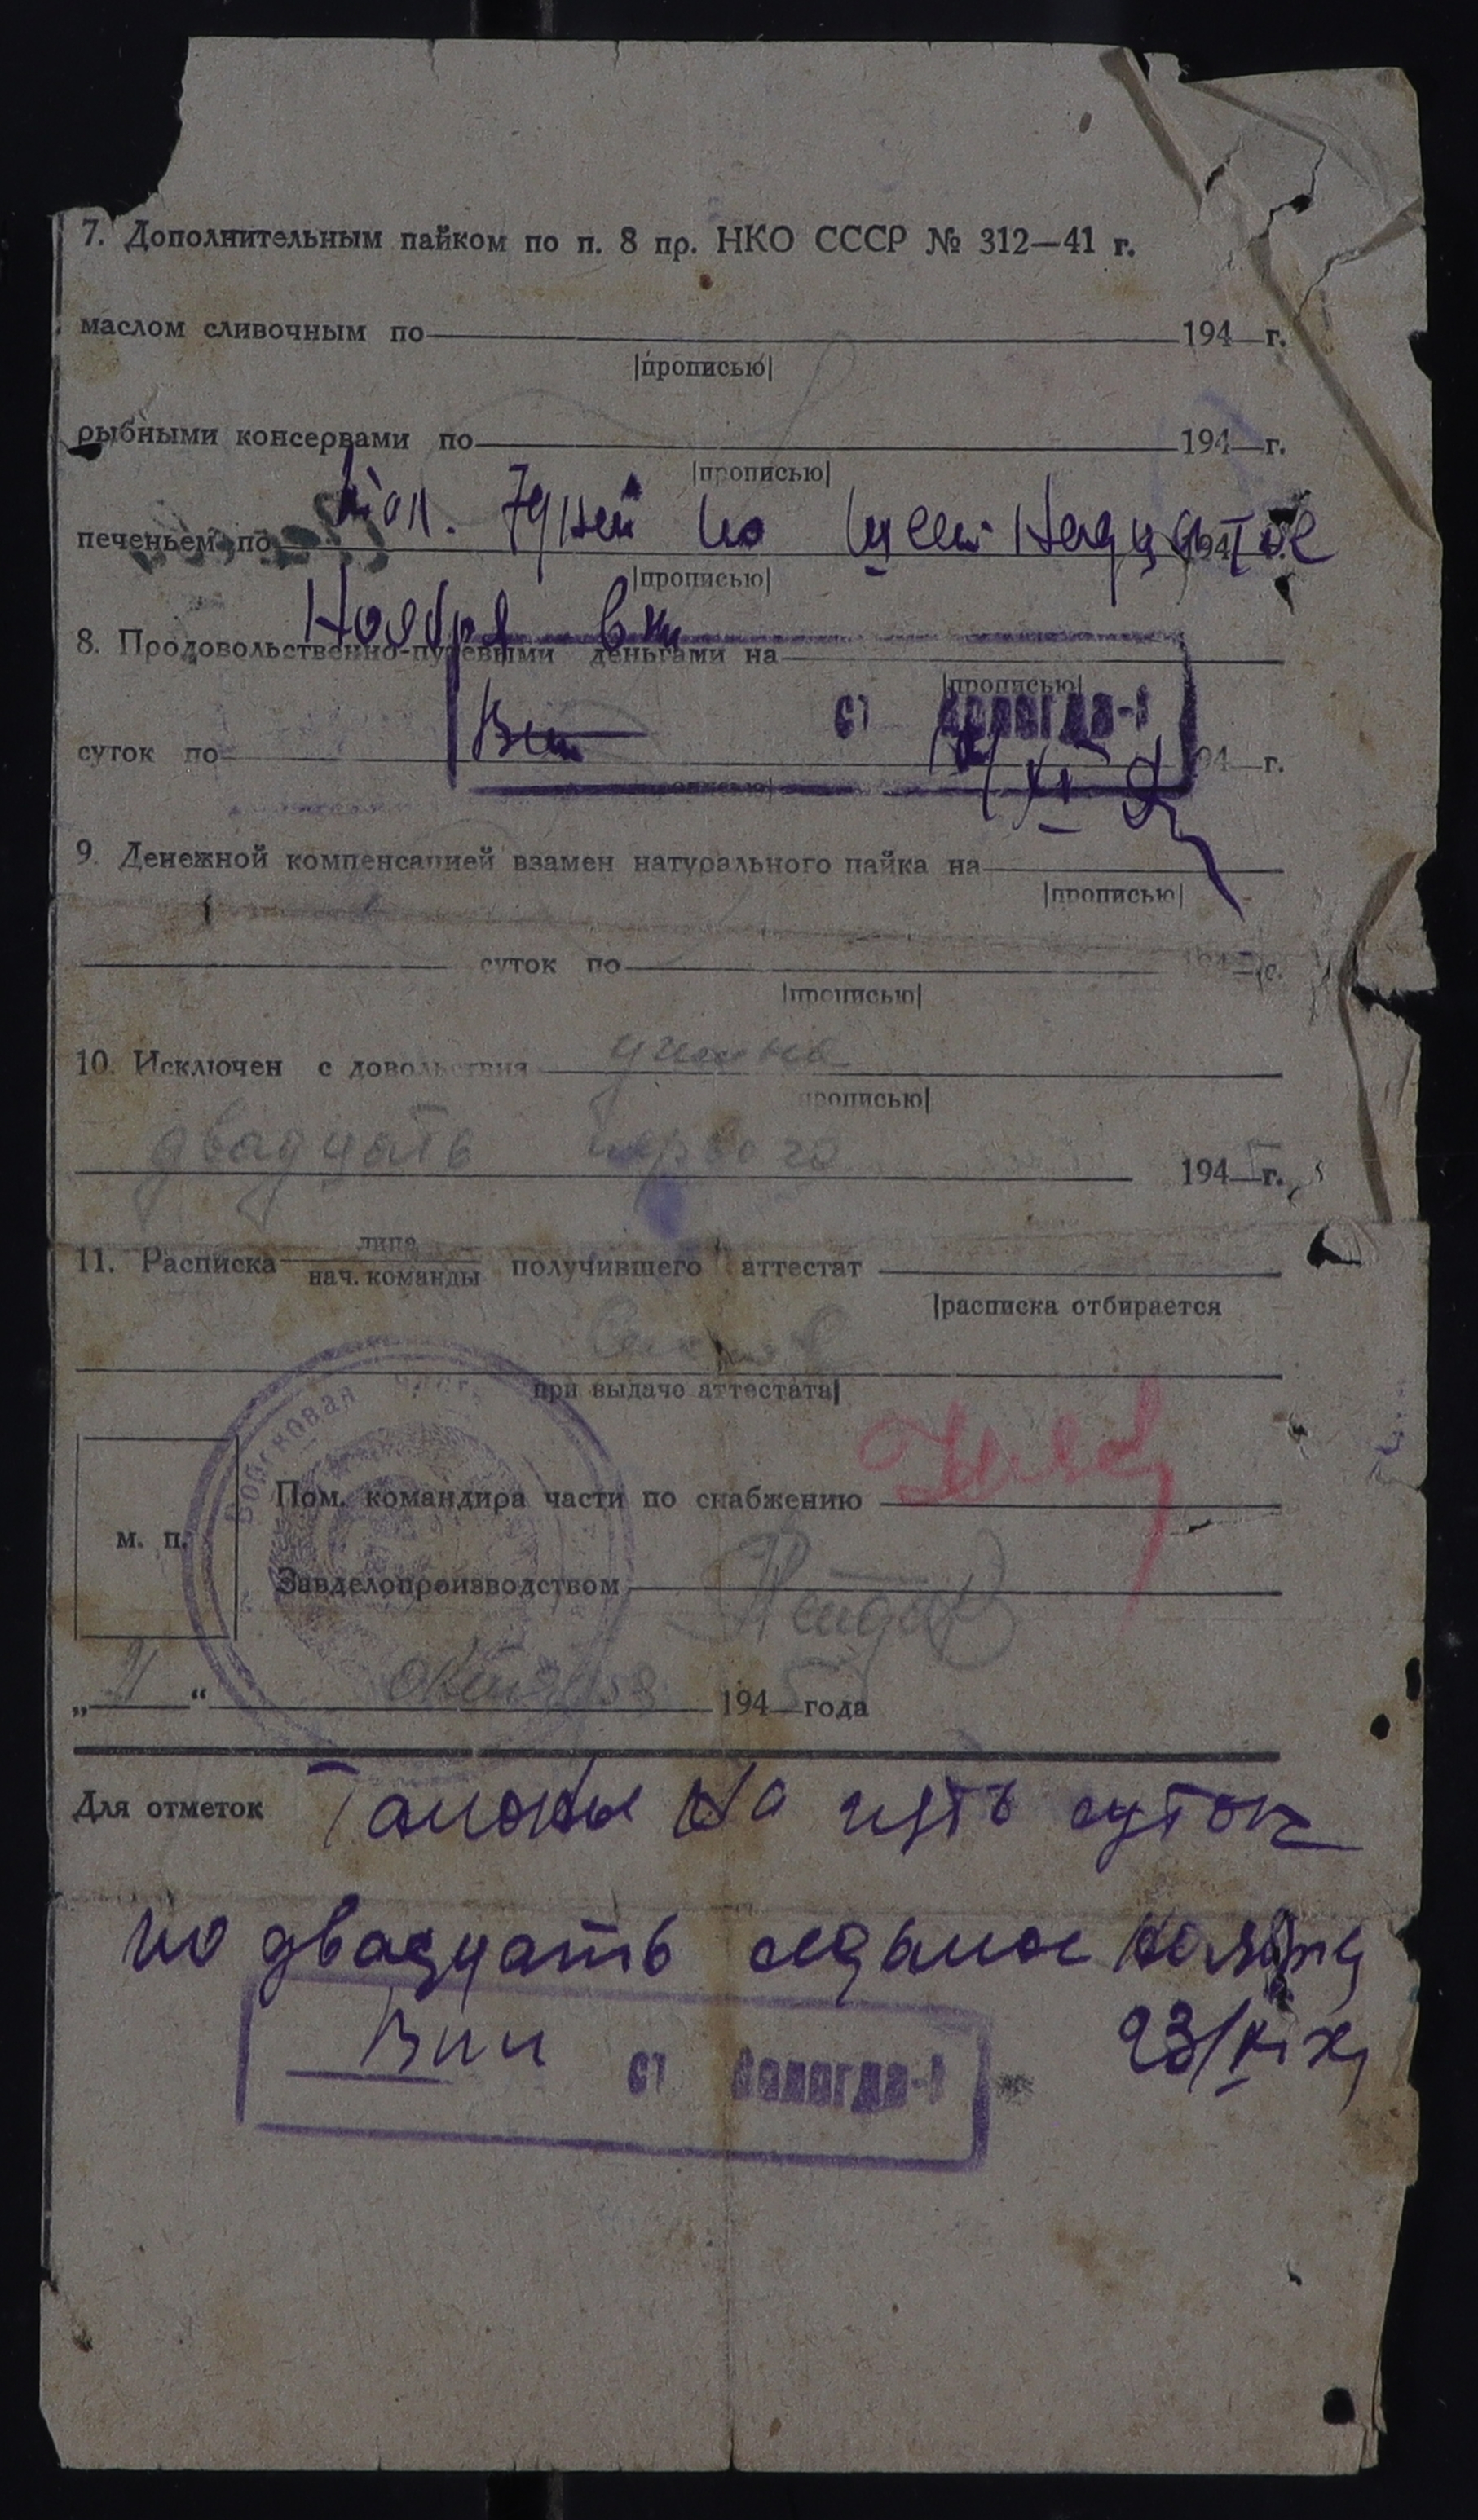 7. Дополнительным пайком по п. 8 пр. НКО СССР № 312—41 г.
маслом сливочным по 194 г.
|прописью|
рыбными консервами по 194 г.
|прописью|
печеньем по 194
7 дней по шестнадцатое
|прописью|
Ноября вкл
8. Продовольственно-путевыми деньгами на
|прописью|
ст Вологда-1
суток по 194 г.
прописью|
9. Денежной компенсацией взамен натурального пайка на
|прописью|
суток по 194 г.
|прописью|
10. Исключен с довольствия ужина
прописью|
двадцать первого 194 г.
11. Расписка лица
нач. команды получившего аттестат
|расписка отбирается
при выдаче аттестата|
Войсковая часть
Пом. командира части по снабжению
м. п.
Завделопроизводством
„21“ октября 1945 года
Для отметок Талоны на пять суток
по двадцать седьмое ноября
23/XI
ст Вологда-1